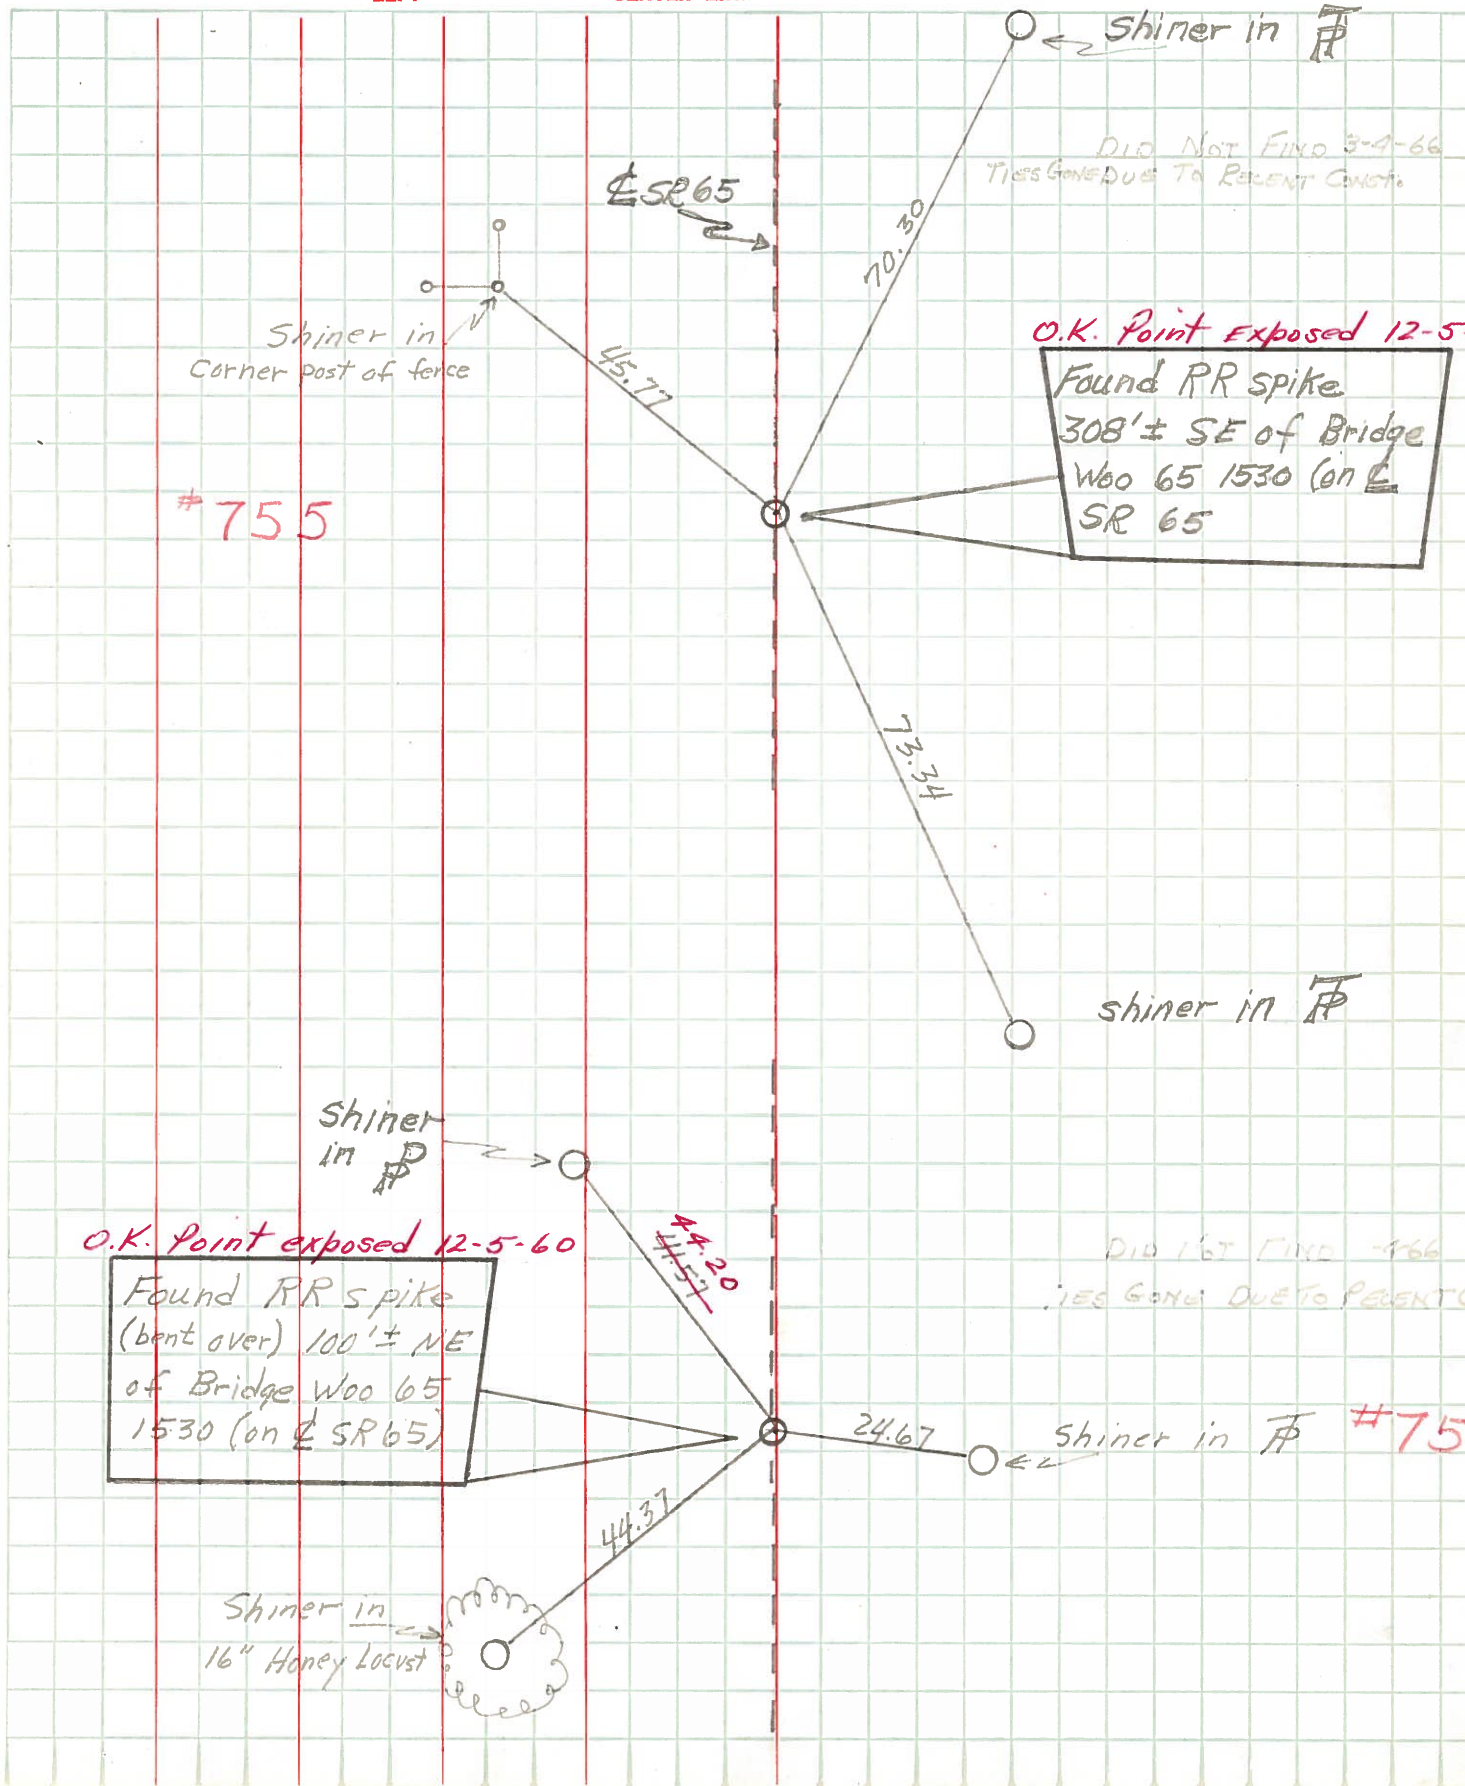 Shiner in TP
DID NOT FIND 3-4-66
TIES GONE DUE TO RECENT CONST.
℄ SR 65
70.30
Shiner in
Corner post of fence
45.77
O.K. Point Exposed 12-5-
Found RR spike
308'± SE of Bridge
Woo 65 1530 (on ℄
SR 65
#755
73.34
shiner in TP
Shiner
in PP
44.20
41.57
O.K. Point exposed 12-5-60
Found RR spike
(bent over) 100'± NE
of Bridge Woo 65
1530 (on ℄ SR 65)
DID NOT FIND -4-66
IES GONE DUE TO RECENT
24.67
Shiner in TP
#75
44.37
Shiner in
16" Honey Locust